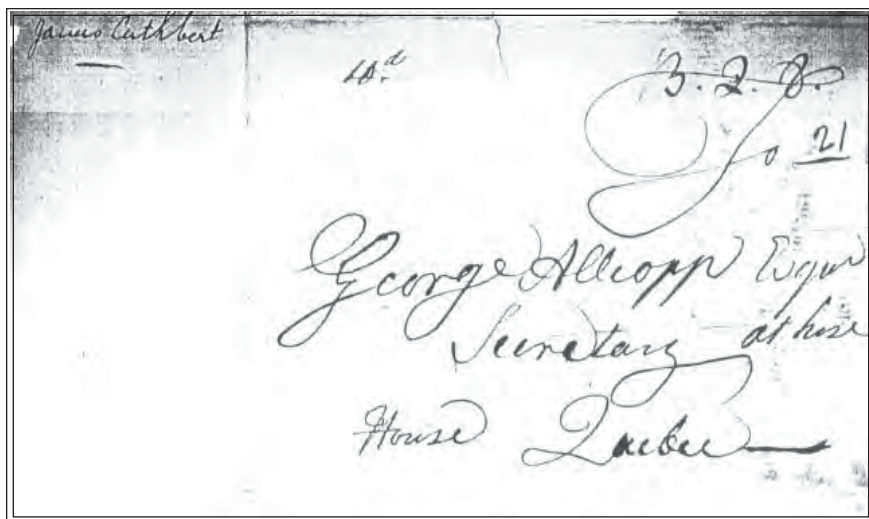 James Cuthbert
3.2.8.
To 21
George Allsopp Esqur
Secretary at his
House Quebec